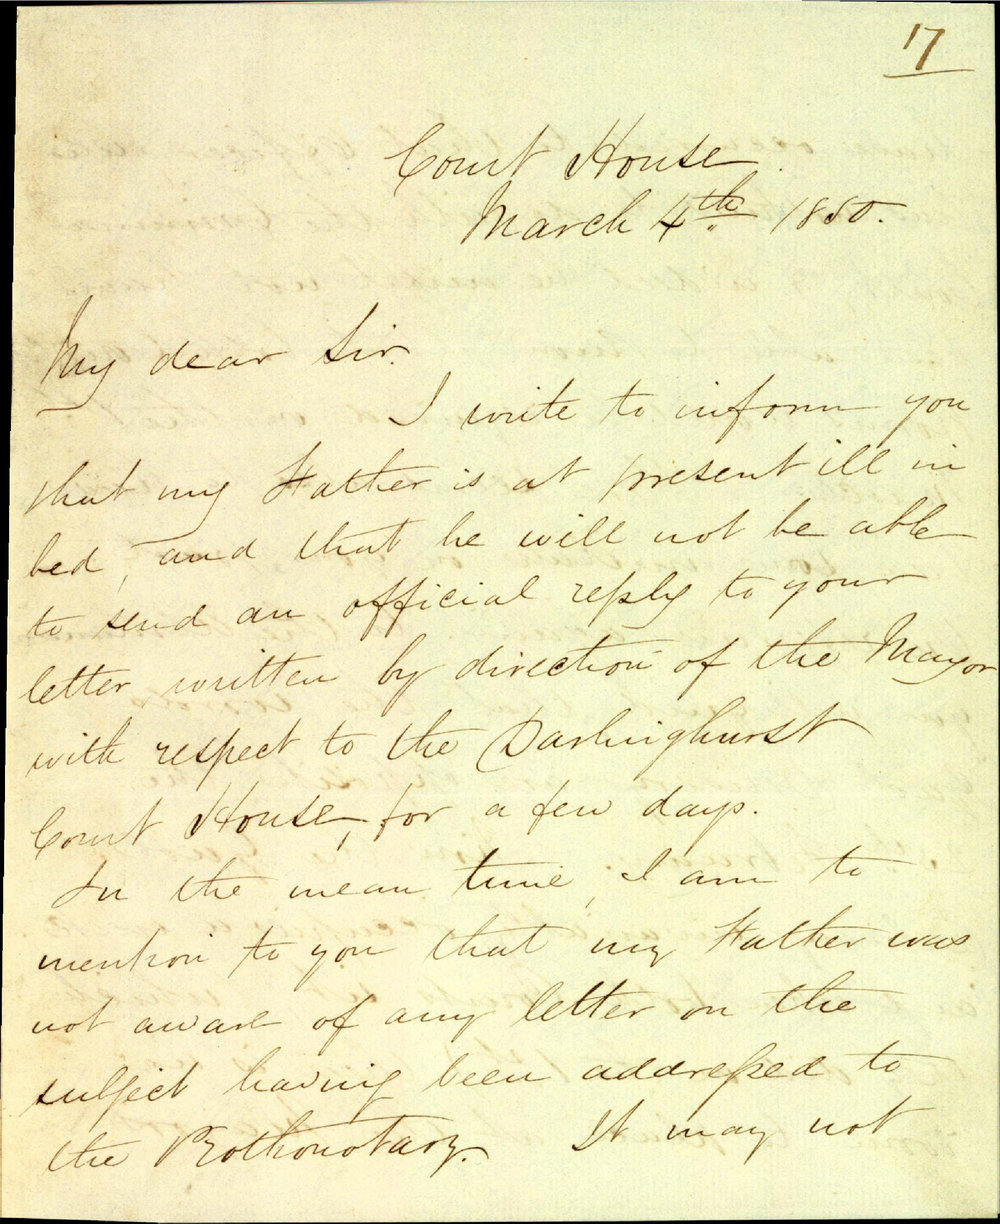 17
Court House
March 4th 1850.
My dear Sir.
I write to inform you
that my Father is at present ill in
bed, and that he will not be able
to send an official reply to your
letter written by direction of the Mayor
with respect to the Darlinghurst
Court House, for a few days.
In the mean time, I am to
mention to you that my Father was
not aware of any letter on the
subject having been addressed to
the Prothonotary. It may not